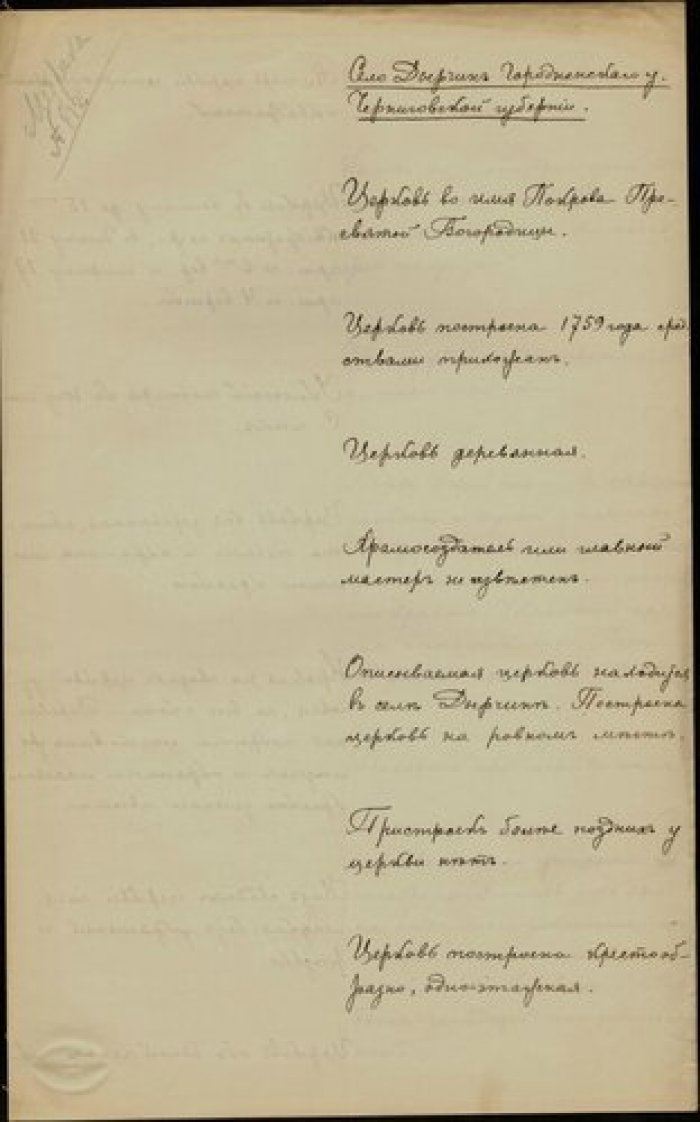 Село Дырчинъ Городненскаго у.
Черниговской губернiи.
Церковь во имя Покрова Пре-
святой Богородицы.
Церковь построена 1759 года сред-
ствами прихожанъ.
Церковь деревянная.
Храмосоздатель или главный
мастеръ не извѣстенъ.
Описываемая церковь находится
въ селѣ Дырчинѣ. Построена
церковь на ровномъ мѣстѣ.
Пристроекъ болѣе позднихъ у
церкви нѣтъ.
Церковь построена крестооб-
разно, одно-этажная.